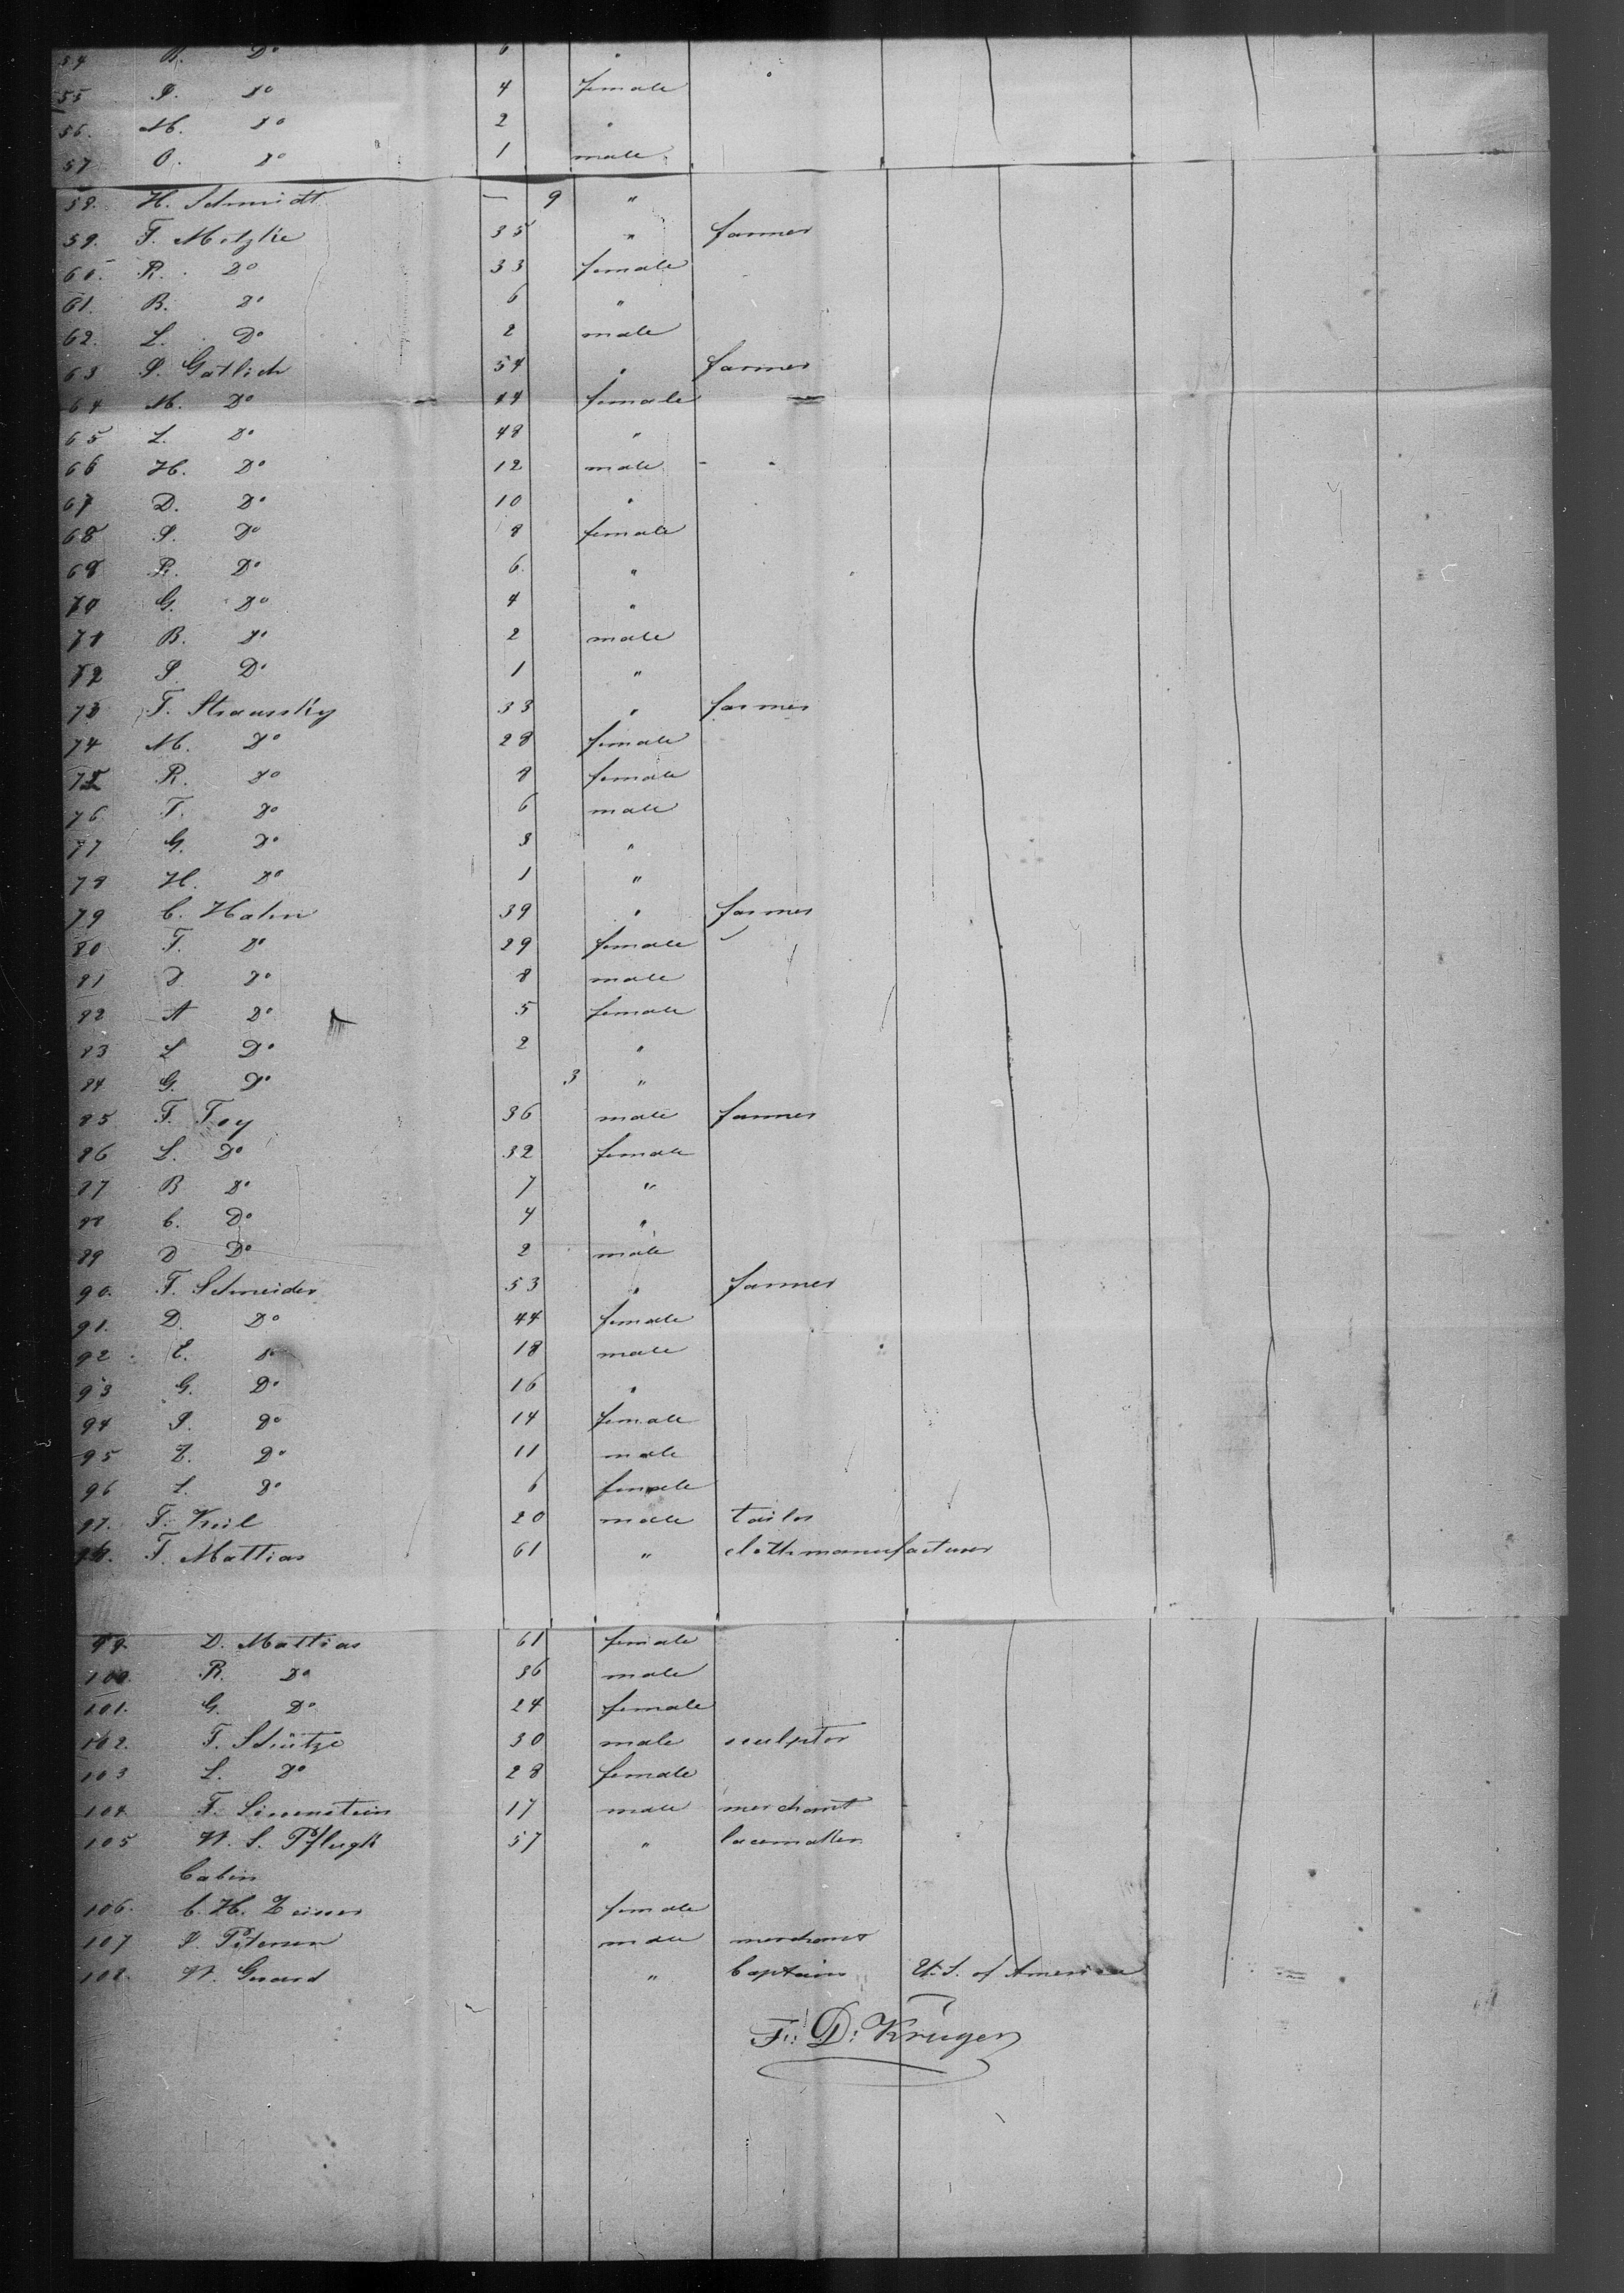 54 B. Do 6 "
55 S. Do 4 female
56. M. Do 2 "
57 O. Do 1 male
58. H. Schmidt — 9 "
59. F. Metzke 35 " farmer
60. R. Do 33 female
61. B. Do 6 "
62. L. Do 2 male
63 S. Gatlich 54 " farmer
64 M. Do 44 female —
65 L. Do 48 "
66 H. Do 12 male
67 D. Do 10 "
68 S. Do 8 female
69 R. Do 6 "
70 G. Do 4 "
71 B. Do 2 male
72 S. Do 1 "
73 F. Straussky 33 " farmer
74 M. Do 28 female
75 R. Do 8 female
76 F. Do 6 male
77 G. Do 3 "
78 H. Do 1 "
79 C. Hahn 39 " farmer
80 F. Do 29 female
81 Do 8 male
82 A Do 5 female
83 L Do 2 "
84 G. Do 3 "
85 F. Foy 36 male farmer
86 L. Do 32 female
87 B Do 7 "
88 C. Do 4 "
89 D Do 2 male
90. F. Schneider 53 " farmer
91. D. Do 44 female
92 E. Do 18 male
93 G. Do 16 "
94 S. Do 14 female
95 Z. Do 11 male
96 L. Do 6 female
97. F. Keil 20 male tailor
98. F. Mattias 61 " clothmanufacturer
99. D. Mattias 61 female
100. R. Do 36 male
101. G. Do 24 female
102. F. Schütze 30 male sculptor
103 L. Do 28 female
104 F. Linenstein 17 male merchant
105 W. S. Pflugk 57 " lacemaker
Cabin
106. C. H. female
107 P. Petersen male merchant
108. W. Gerard " Captain U.S. of America
F: D: Krüger